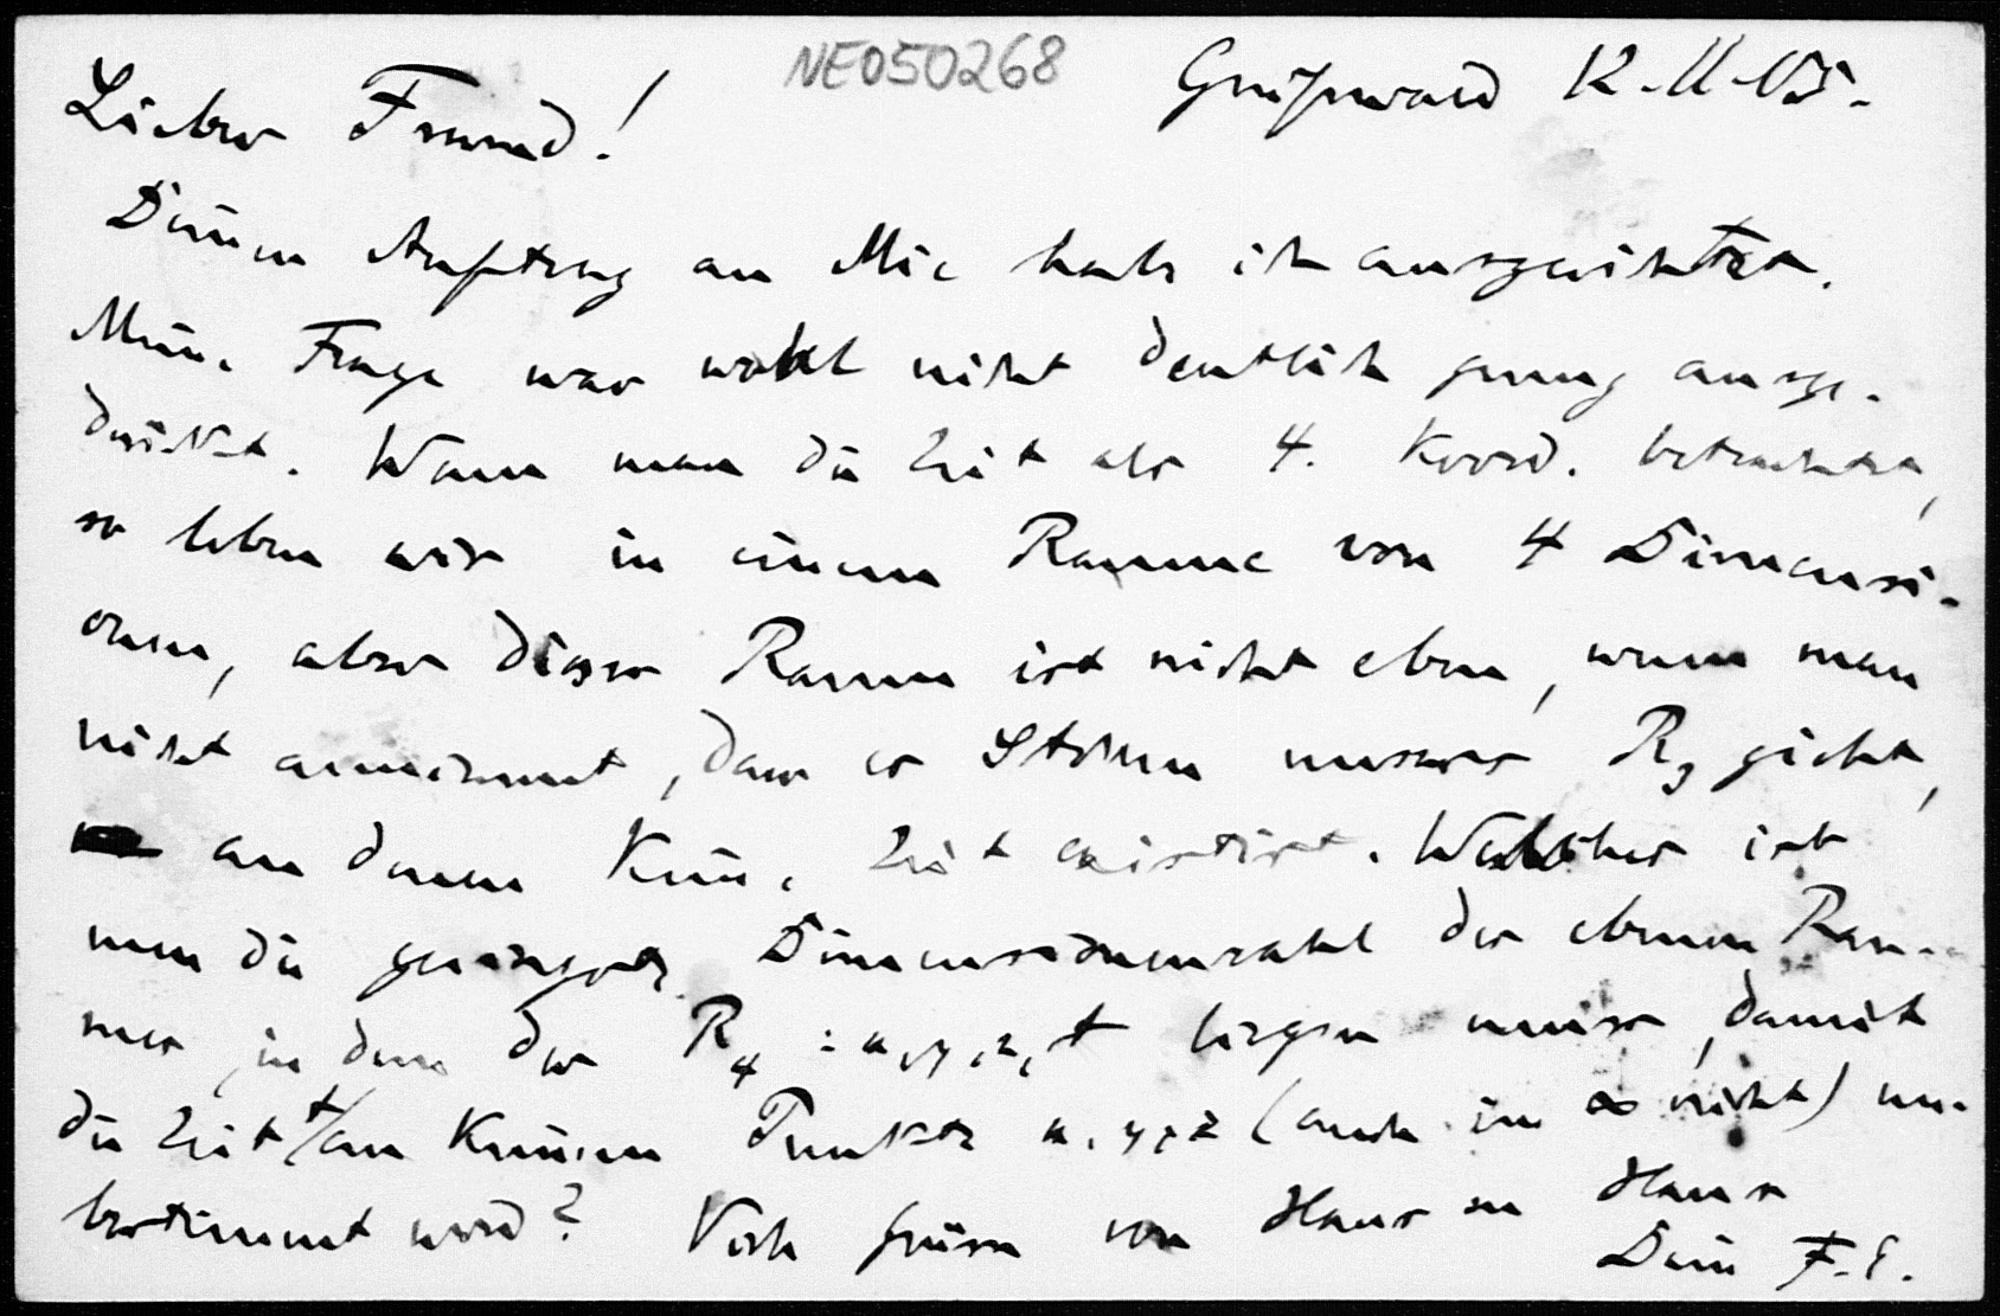 NE050268
Greifswald 12.11.05.
Lieber Freund!
Deinen Auftrag an Mie habe ich ausgerichtet.
Meine Frage war wohl nicht deutlich genug ausge-
drückt. Wenn man die Zeit als 4. Koord. betrachtet,
so leben wir in einem Raume von 4 Dimensi-
onen, aber dieser Raum ist nicht eben, wenn man
nicht annimmt, dass es Stellen unseres R3 giebt,
an denen keine Zeit existirt. Welches ist
nun die geringste Dimensionenzahl des ebenen Rau-
mes, in dem der R4 : x, y, z, t liegen muss, damit
die Zeit t an keinem Punkte x, y, z (auch im ∞ nicht) un-
bestimmt wird? Viele Grüsse von Haus zu Haus
Dein F. E.